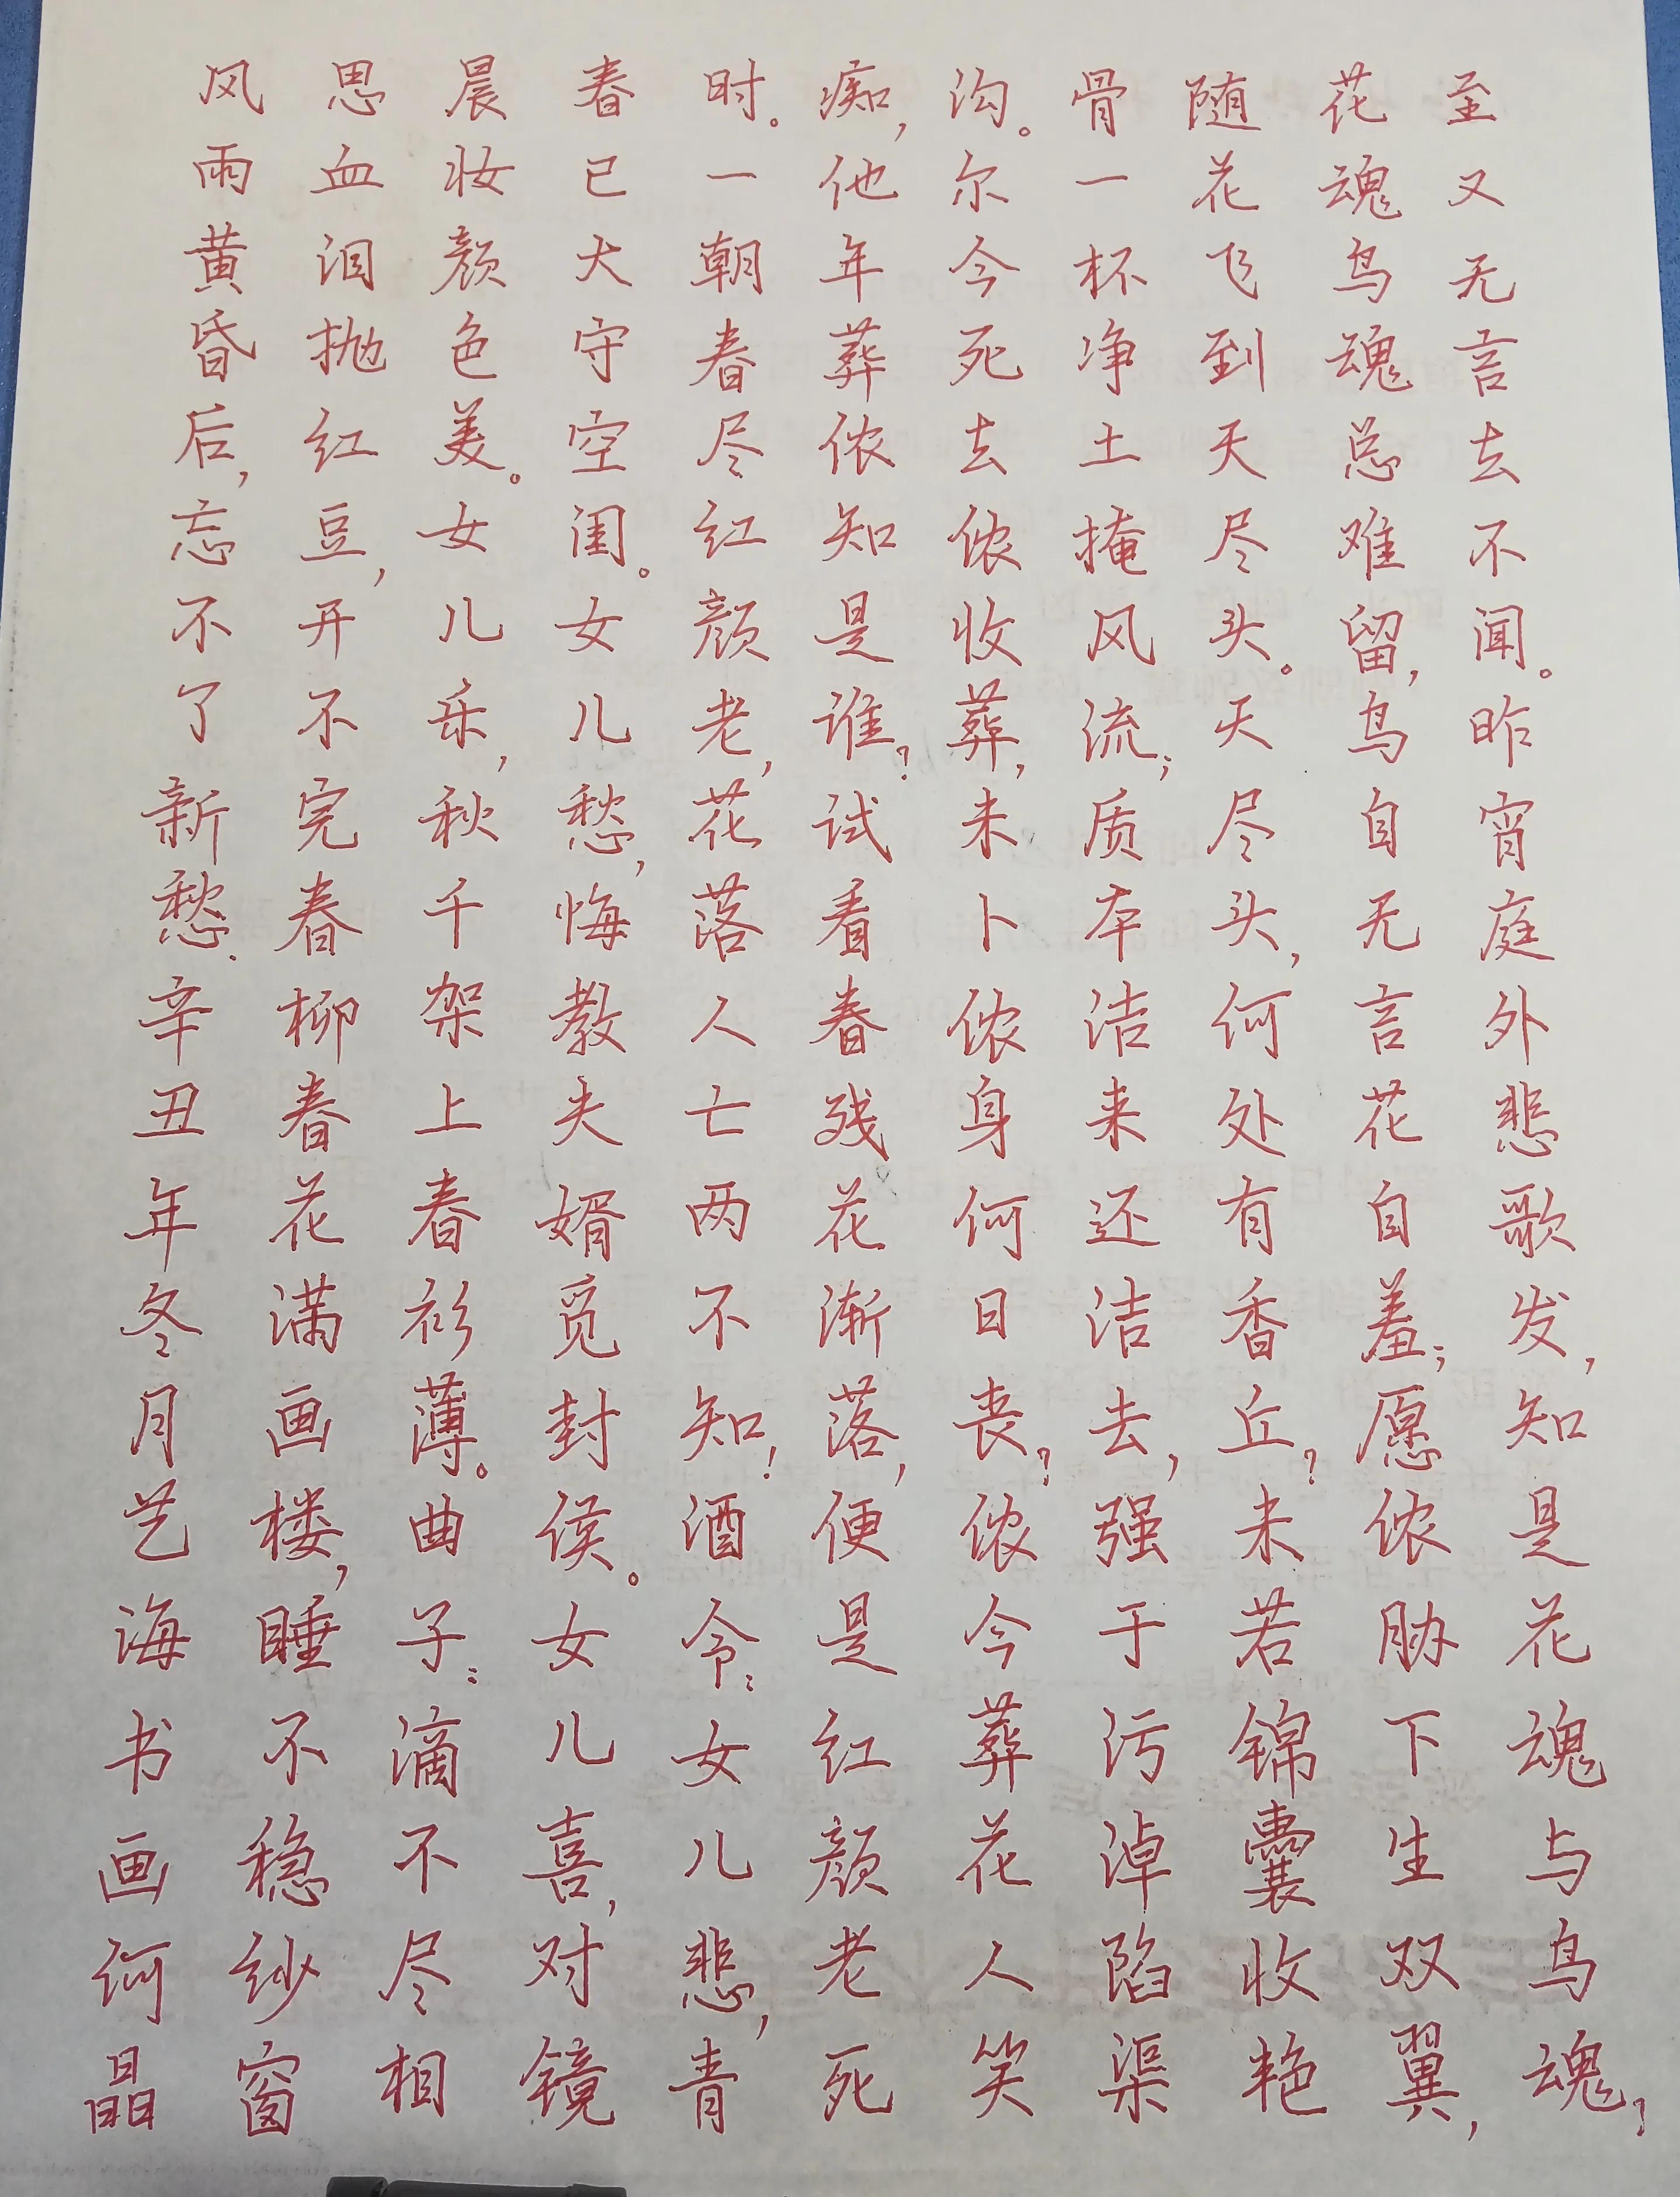 至又无言去不闻。昨宵庭外悲歌发,知是花魂与鸟魂?
花魂鸟魂总难留,鸟自无言花自羞;愿侬胁下生双翼,
随花飞到天尽头。天尽头,何处有香丘?未若锦囊收艳
骨一杯净土掩风流;质本洁来还洁去,强于污淖陷渠
沟。尔今死去侬收葬,未卜侬身何日丧?侬今葬花人笑
痴,他年葬侬知是谁?试看春残花渐落,便是红颜老死
时。一朝春尽红颜老,花落人亡两不知!酒令:女儿悲,青
春已大守空闺。女儿愁,悔教夫婿觅封侯。女儿喜,对镜
晨妆颜色美。女儿乐,秋千架上春衫薄。曲子:滴不尽相
思血泪抛红豆,开不完春柳春花满画楼,睡不稳纱窗
风雨黄昏后,忘不了新愁.辛丑年冬月艺海书画何晶